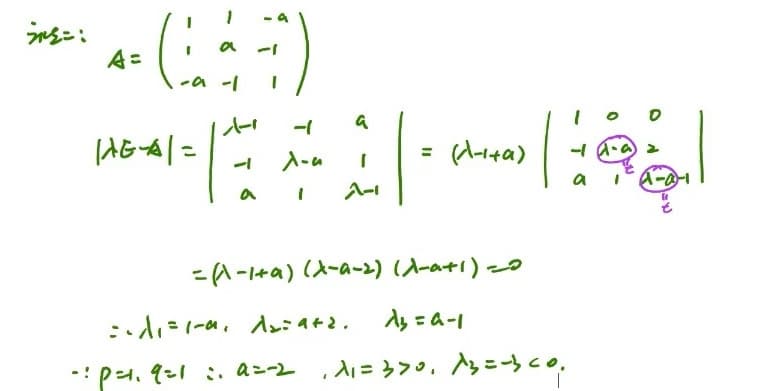 法二: A = ( 1 1 -a ; 1 a -1 ; -a -1 1 )
|λE-A| = | λ-1 -1 a ; -1 λ-a 1 ; a 1 λ-1 | = (λ-1+a) | 1 0 0 ; -1 λ-a 2 ; a 1 λ-a-1 |
t
t
= (λ-1+a) (λ-a-2) (λ-a+1) = 0
∴ λ₁=1-a, λ₂=a+2. λ₃=a-1
∵ p=1, q=1 ∴ a=-2 , λ₁=3>0, λ₃=-3<0.